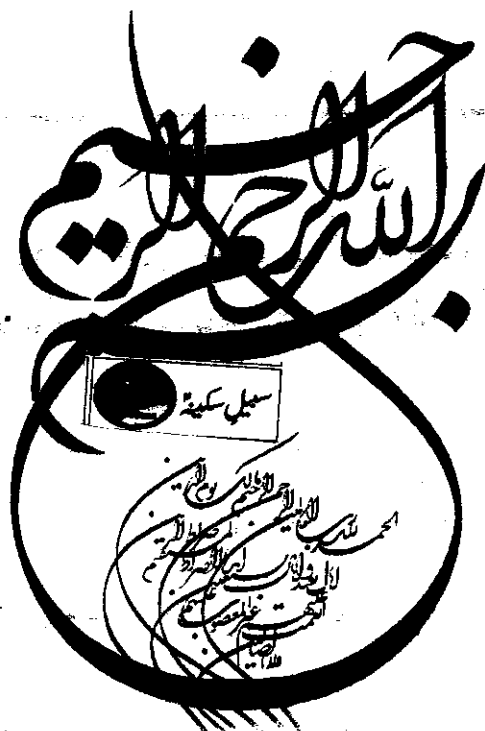 بسم الله الرحمن الرحيم
سبیل سکینہؑ
الحمد لله رب العالمين الرحمن الرحيم مالك يوم الدين
اياك نعبد و اياك نستعين اهدنا الصراط المستقيم
صراط الذين انعمت عليهم غير المغضوب عليهم
و لا الضالين